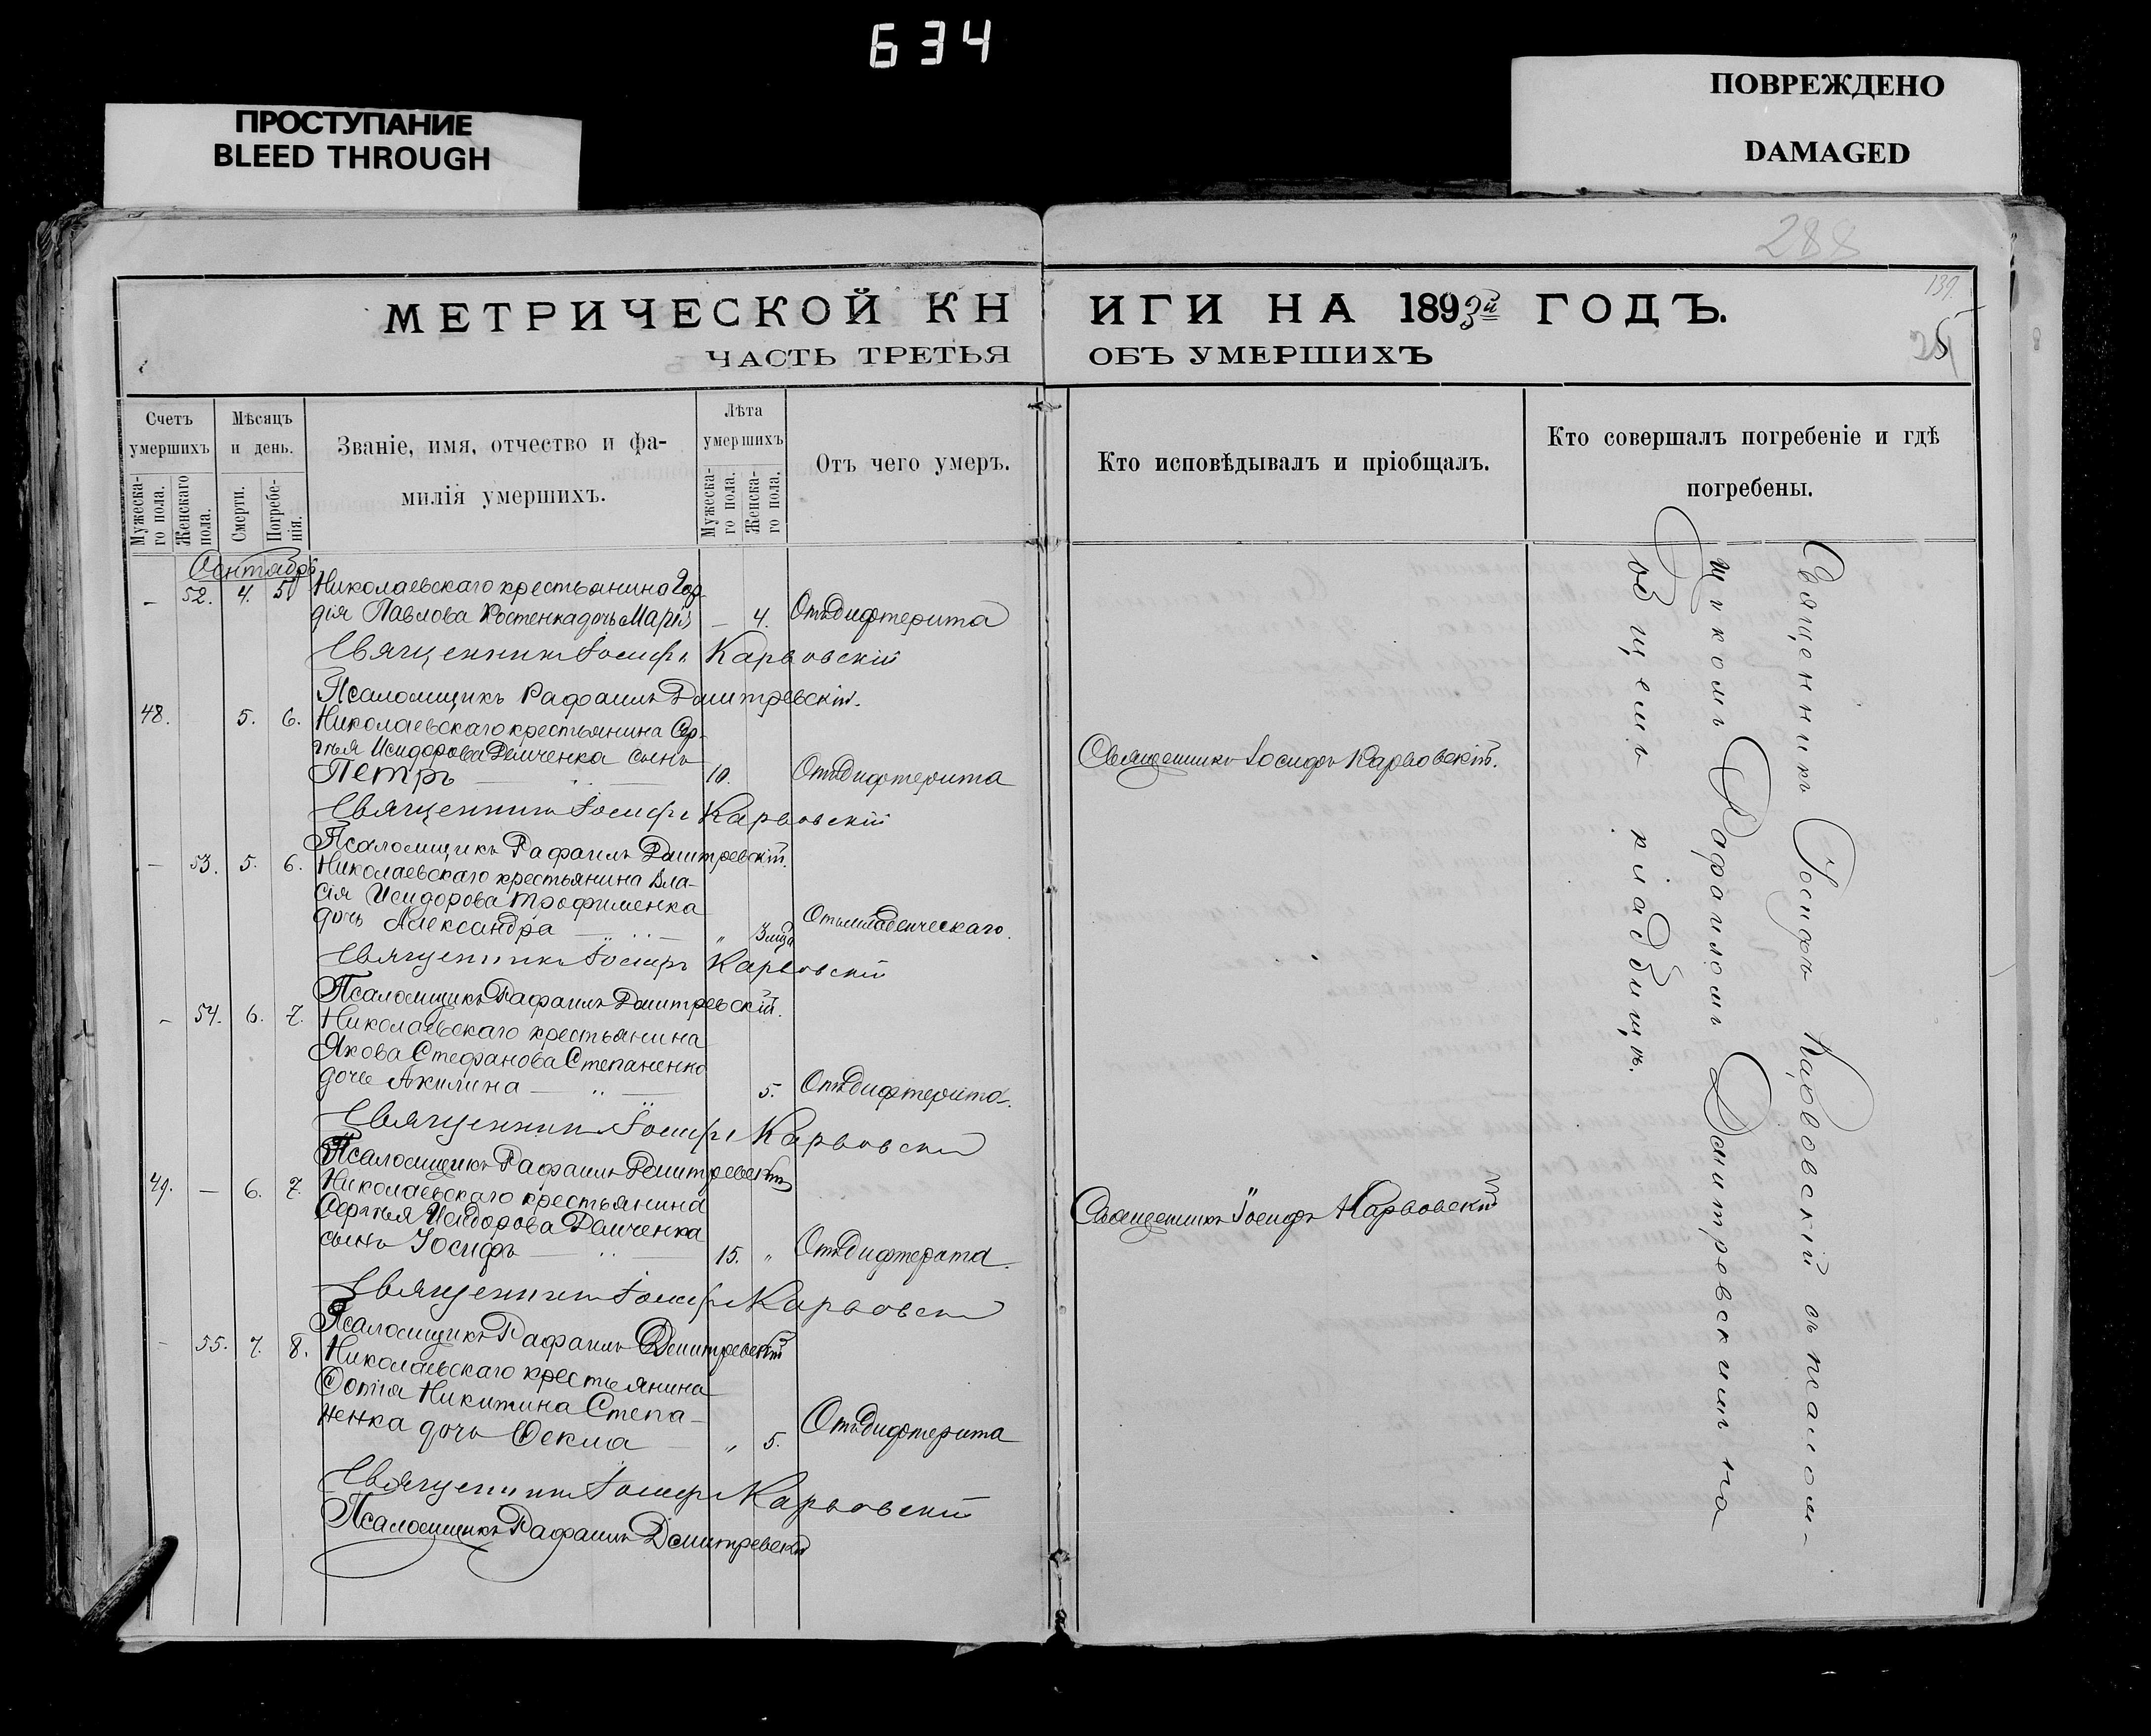 634
ПРОСТУПАНИЕ
BLEED THROUGH
ПОВРЕЖДЕНО
DAMAGED
288
139.
МЕТРИЧЕСКОЙ КНИГИ НА 1893й ГОДЪ.
ЧАСТЬ ТРЕТЬЯ ОБЪ УМЕРШИХЪ
Счетъ умершихъ
Мужеска-го пола.
Женскаго пола.
Мѣсяцъ и день.
Смерти.
Погребе-нія.
Званіе, имя, отчество и фа-
милія умершихъ.
Лѣта умершихъ
Мужеска-го пола.
Женска-го пола.
Отъ чего умеръ.
Кто исповѣдывалъ и пріобщалъ.
Кто совершалъ погребеніе и гдѣ
погребены.
Сентябрь
– 52. 4. 5 Николаевскаго крестьянина Гор-
дія Павлова Костенка дочь Марія – 4. Отъ дифтерита
Священникъ Іосифъ Карвовскій
Псаломщикъ Рафаилъ Дмитревскій.
48. 5. 6. Николаевскаго крестьянина Сер-
гѣя Исидорова Демченка сынъ
Петръ 10. Отъ дифтерита Священникъ Іосифъ Карвовскій.
Священникъ Іосифъ Карвовскій
Псаломщикъ Рафаилъ Дмитревскій.
– 53. 5. 6. Николаевскаго крестьянина Вла-
сія Исидорова Трофименка
дочь Александра „ 3 мца Отъ младенческаго.
Священникъ Іосифъ Карвовскій
Псаломщикъ Рафаилъ Дмитревскій.
– 54. 6. 7. Николаевскаго крестьянина
Якова Стефанова Степаненко
дочь Акилина 5. Отъ дифтерита.
Священникъ Іосифъ Карвовскій
Псаломщикъ Рафаилъ Дмитревскій
49. – 6. 7. Николаевскаго крестьянина
Сергѣя Исидорова Демченка
сынъ Іосифъ 15. „ Отъ дифтерита. Священникъ Іосифъ Карвовскій
Священникъ Іосифъ Карвовскій
Псаломщикъ Рафаилъ Дмитревскій
– 55. 7. 8. Николаевскаго крестьянина
Фотія Никитина Степа-
ненка дочь Фекла „ 5. Отъ дифтерита
Священникъ Іосифъ Карвовскій
Псаломщикъ Рафаилъ Дмитревскій
Священникъ Іосифъ Карвовскій съ псалом-
щикомъ Рафаиломъ Дмитревскимъ на
общемъ кладбищѣ.